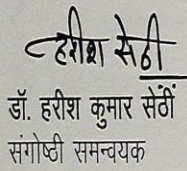 हरीश सेठी
डॉ. हरीश कुमार सेठीं
संगोष्ठी समन्वयक